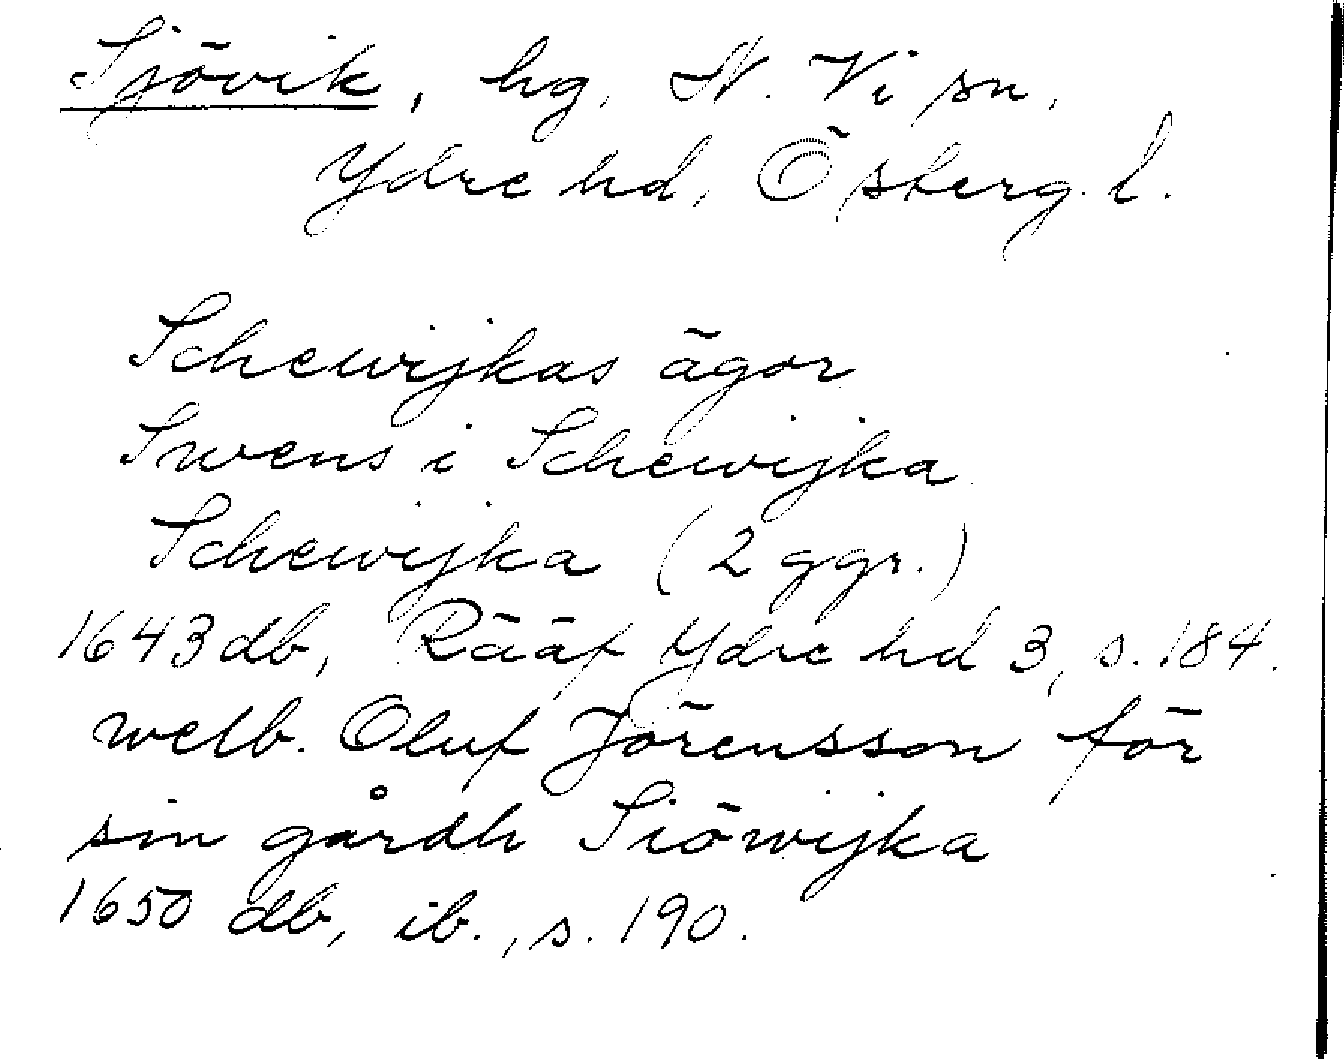 Sjövik, hg. N. Vi sn.
Ydre hd, Österg. l.
Schewijkas ägor
Swens i Schewijka
Schewijka (2 ggr.)
1643 db, Rääf Ydre hd 3, s. 184.
welb. Oluf Jörensson för
sin gårdh Siöwijka
1650 db, ib., s. 190.